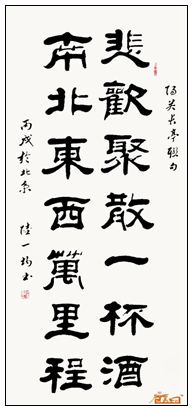 悲歡聚散一杯酒
南北東西萬里程
陽关长亭聯句
丙戌於北京
陸一
书